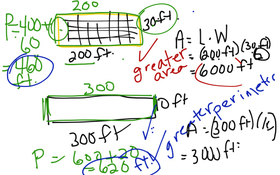 200
P = 400 +
60
= 460
ft.
30 ft
200 ft.
greater
area
A = L · W
= (200 ft)(30 ft)
= 6000 ft
300
10 ft
300 ft.
greater perimeter
P = 600 + 20
= 620 ft.
A = (300 ft)(10)
= 3000 ft.